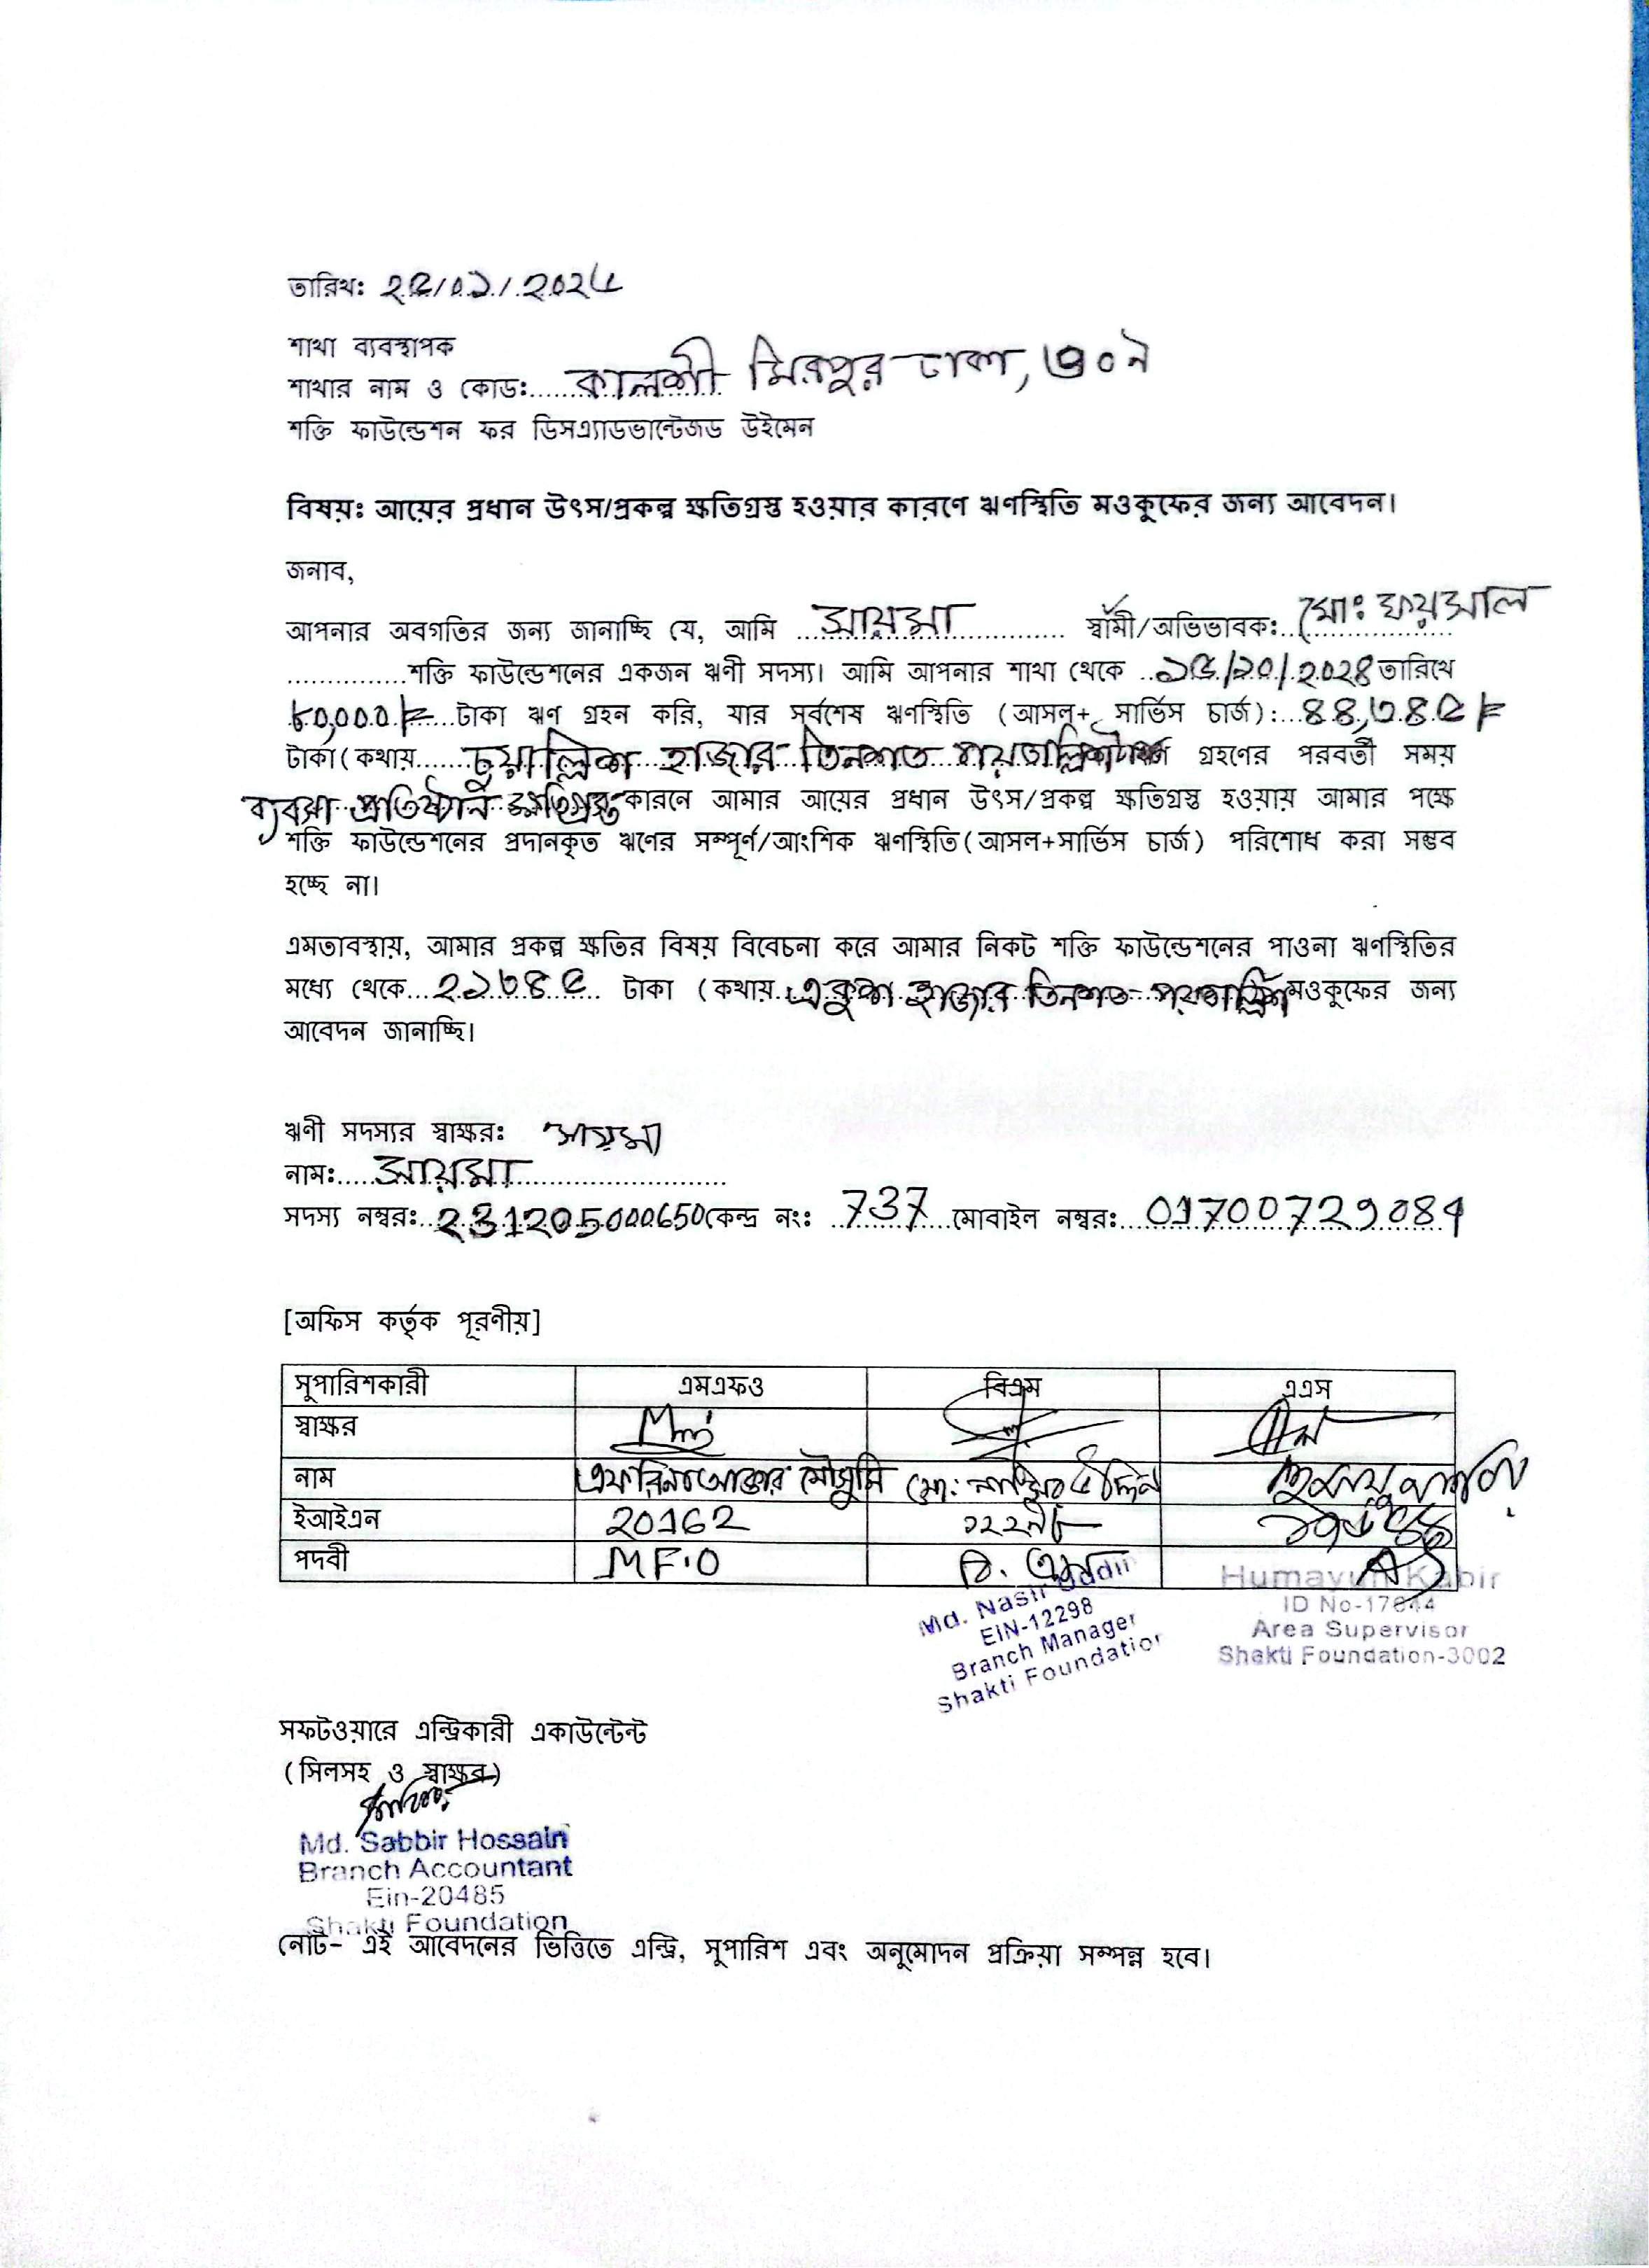 তারিখ: ২৫/০১/২০২৫
শাখা ব্যবস্থাপক
শাখার নাম ও কোড: কালশী মিরপুর ঢাকা,
শক্তি ফাউন্ডেশন ফর ডিসএ্যাডভান্টেজড উইমেন
বিষয়: আয়ের প্রধান উৎস/প্রকল্প ক্ষতিগ্রস্ত হওয়ার কারণে ঋণস্থিতি মওকুফের জন্য আবেদন।
জনাব,
আপনার অবগতির জন্য জানাচ্ছি যে, আমি সায়মা স্বামী/অভিভাবক: মো: ফয়সাল
শক্তি ফাউন্ডেশনের একজন ঋণী সদস্য। আমি আপনার শাখা থেকে ১৫/১০/২০২৪ তারিখে
৮০,০০০/= টাকা ঋণ গ্রহন করি, যার সর্বশেষ ঋণস্থিতি (আসল+ সার্ভিস চার্জ): ৪৪,৩৪৫/=
টাকা (কথায় চুয়াল্লিশ হাজার তিনশত গ্রহণের পরবর্তী সময়
ব্যবসা প্রতিষ্ঠান ক্ষতিগ্রস্ত কারনে আমার আয়ের প্রধান উৎস/প্রকল্প ক্ষতিগ্রস্ত হওয়ায় আমার পক্ষে
শক্তি ফাউন্ডেশনের প্রদানকৃত ঋণের সম্পূর্ণ/আংশিক ঋণস্থিতি (আসল+সার্ভিস চার্জ) পরিশোধ করা সম্ভব
হচ্ছে না।
এমতাবস্থায়, আমার প্রকল্প ক্ষতির বিষয় বিবেচনা করে আমার নিকট শক্তি ফাউন্ডেশনের পাওনা ঋণস্থিতির
মধ্যে থেকে ২১৩৪৫ টাকা (কথায় একুশ হাজার তিনশত মওকুফের জন্য
আবেদন জানাচ্ছি।
ঋণী সদস্যর স্বাক্ষর: সায়মা
নাম: সায়মা
সদস্য নম্বর: 231205000650 কেন্দ্র নং: 737 মোবাইল নম্বর: 01700729084
[অফিস কর্তৃক পূরণীয়]
সুপারিশকারী এমএফও বিএম এএস
স্বাক্ষর
নাম আক্তার মৌসুমি মো: নাসির উদ্দিন হুমায়ু
ইআইএন 20162 ১২২৯৮
পদবী M F.O বি. এম AS
Md. Nasir Uddin
EIN-12298
Branch Manager
Shakti Foundation
Humayun Kabir
ID No-17644
Area Supervisor
Shakti Foundation-3002
সফটওয়ারে এন্ট্রিকারী একাউন্টেন্ট
(সিলসহ ও স্বাক্ষর)
Md. Sabbir Hossain
Branch Accountant
Ein-20485
Shakti Foundation
নোট- এই আবেদনের ভিত্তিতে এন্ট্রি, সুপারিশ এবং অনুমোদন প্রক্রিয়া সম্পন্ন হবে।